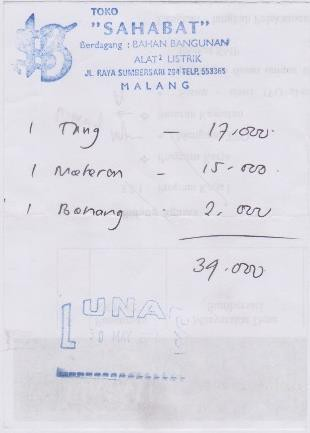 TOKO
"SAHABAT"
Berdagang : BAHAN BANGUNAN
ALAT² LISTRIK
JL. RAYA SUMBERSARI 294 TELP. 553365
MALANG
1 Tang - 17.000
1 Meteran - 15.000
1 Benang - 2.000
39.000
LUNAS
30 MAY